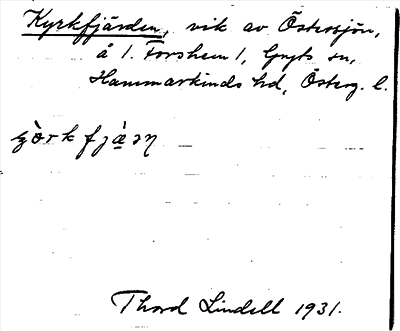 Kyrkfjärden, vik av Östersjön,
å 1. Forshem 1, Gryts sn,
Hammarkinds hd, Österg. l.
Thord Lindell 1931.